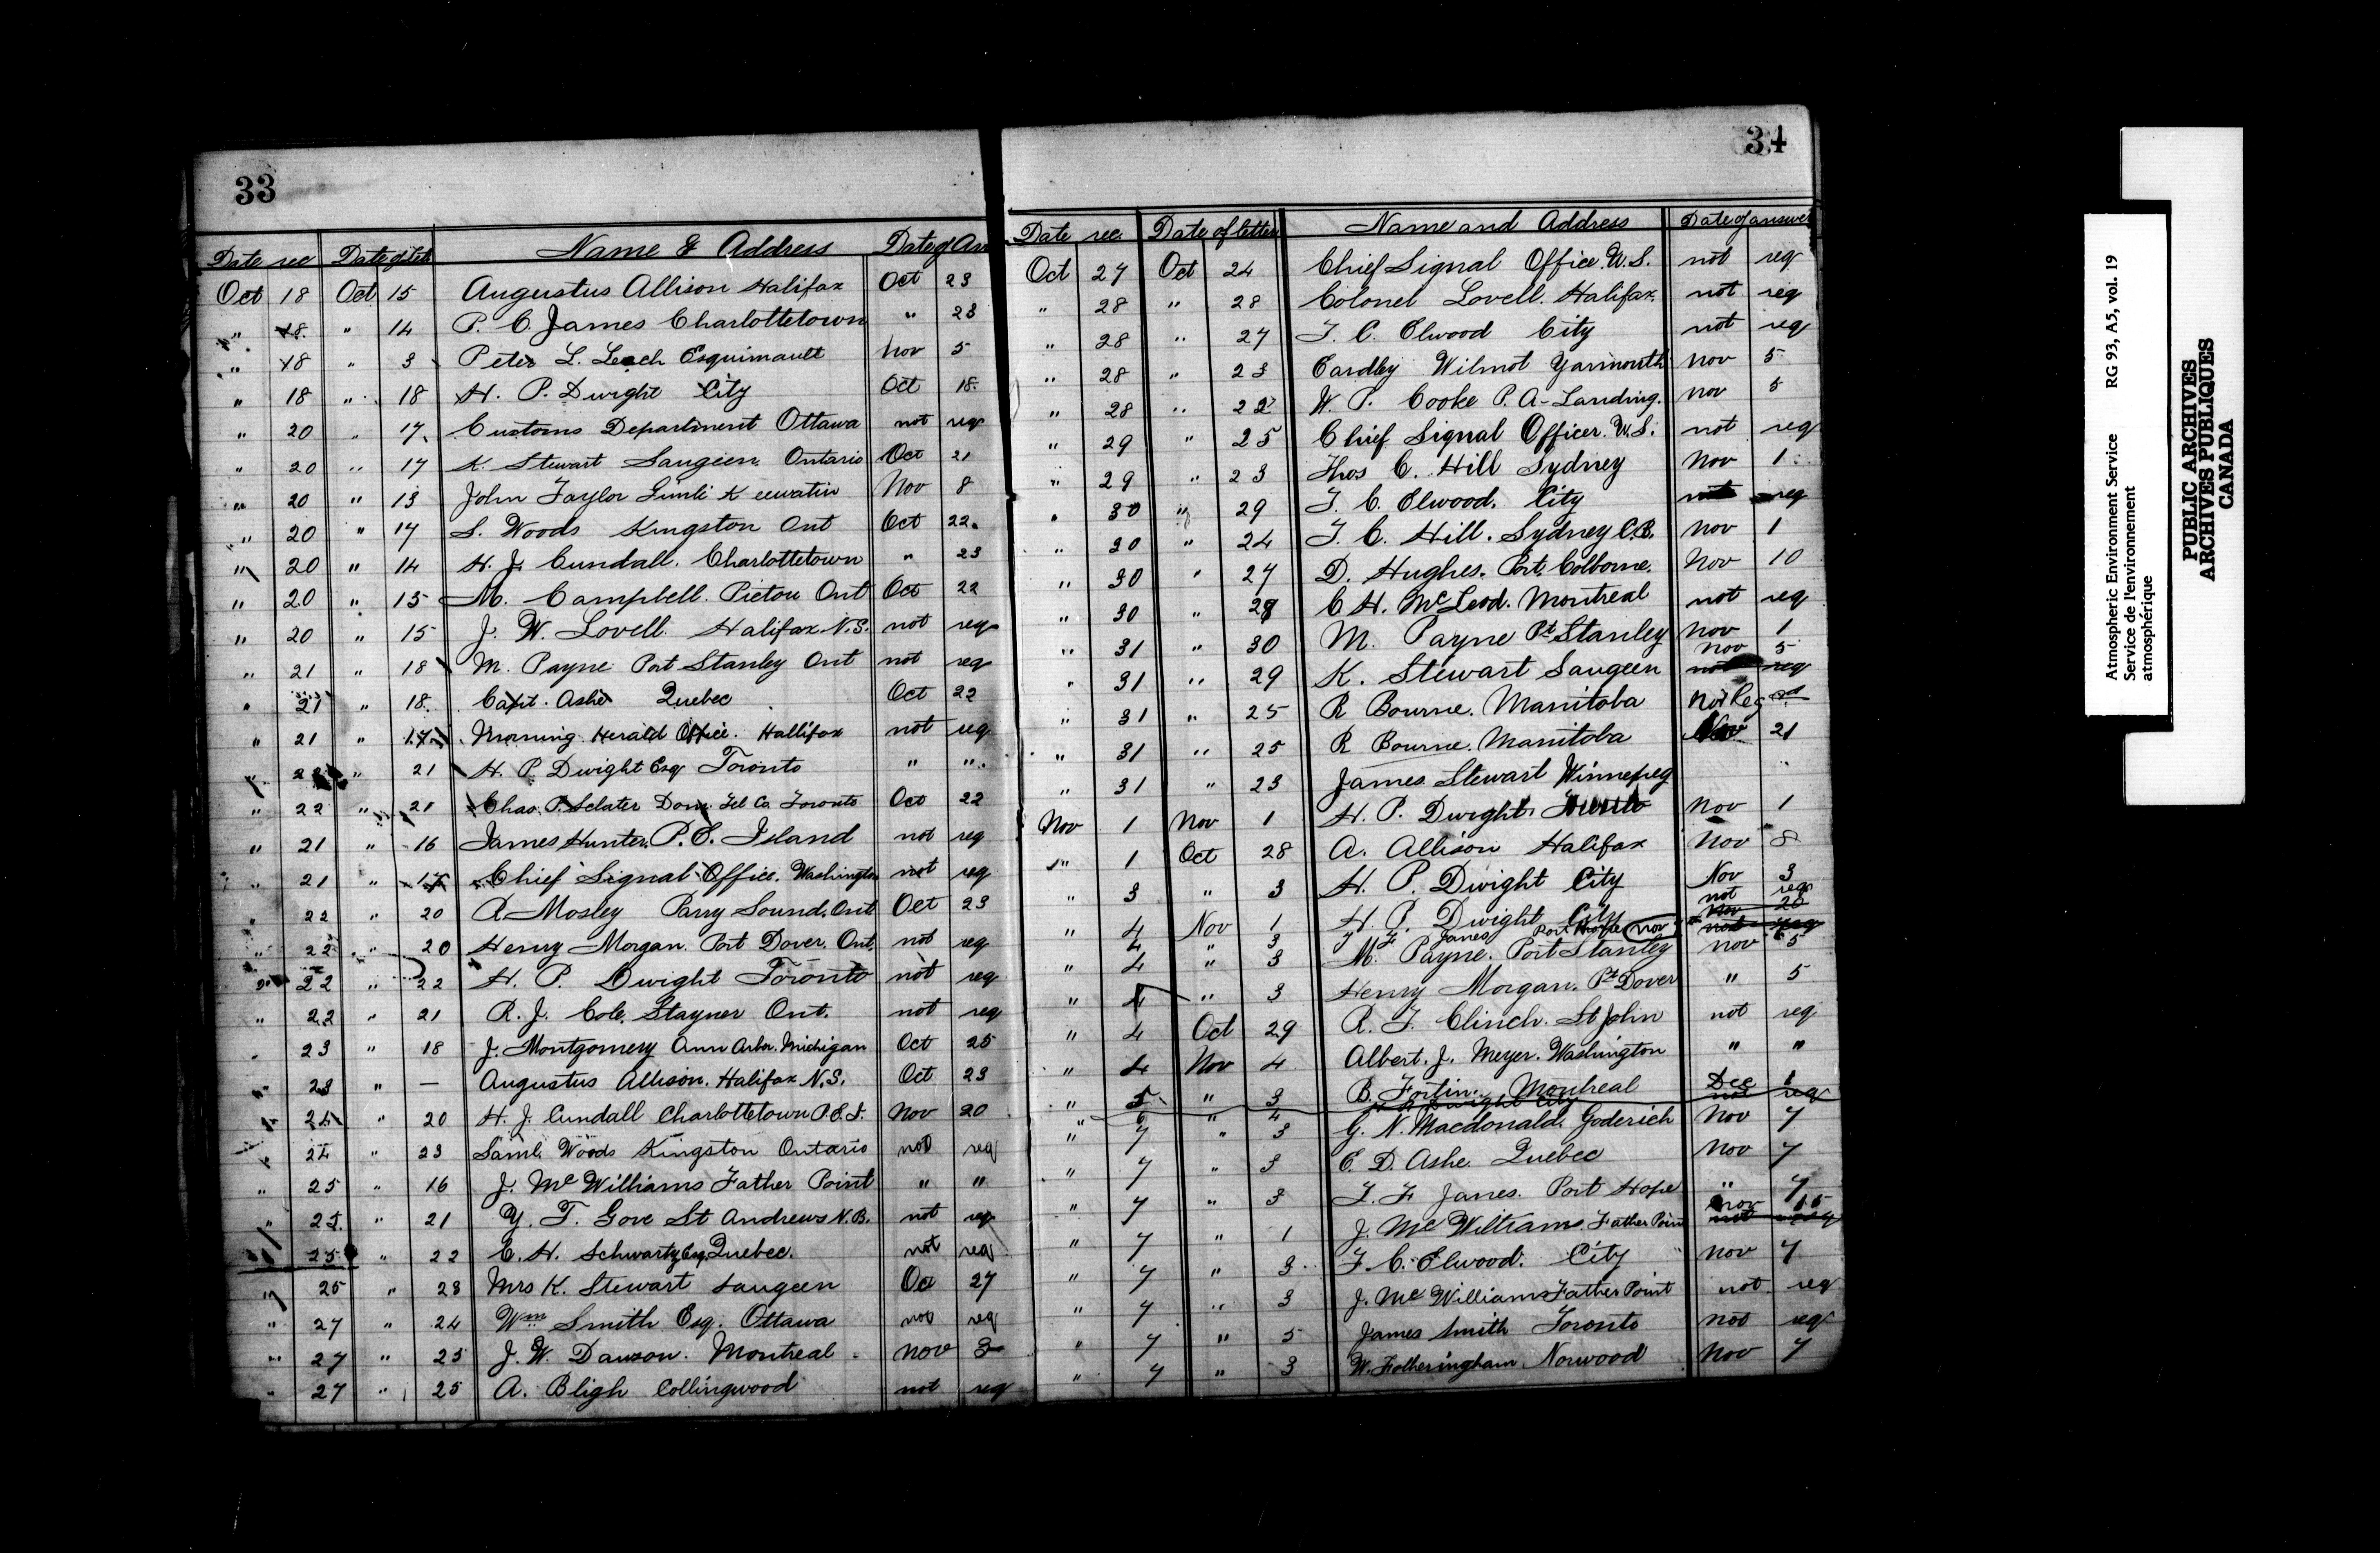 33
Date rec Date of let Name & Address Date of Ans
Oct 18 Oct 15 Augustus Allison Halifax Oct 23
" 18 " 14 P. C. James Charlottetown " 23
" 18 " 3 Peter L. Leech Esquimault Nov 5
" 18 " 18 H. P. Dwight City Oct 18.
" 20 " 17 Customs Department Ottawa not req
" 20 " 17 K. Stewart Saugeen Ontario Oct 21
" 20 " 13 John Taylor Gimli Keewatin Nov 8
" 20 " 17 S. Woods Kingston Ont Oct 22.
" 20 " 14 H. J. Cundall. Charlottetown " 23
" 20 " 15 M. Campbell. Pictou Ont Oct 22
" 20 " 15 J. W. Lovell. Halifax N.S. not req
" 21 " 18 M. Payne Port Stanley Ont not req
" 21 " 18. Capt. Ashe Quebec Oct 22
" 21 " 17 Morning Herald Office. Hallifax not req
" " 21 H. P. Dwight Esq Toronto " "
" 22 " 21 Chas. P. Sclater Dom. Tel Co Toronto Oct 22
" 21 " 16 James Hunter. P. E. Island not req
" 21 " 17 Chief Signal Office. Washington not req
" 22 " 20 R. Mosley Parry Sound. Ont Oct 23
" 22 " 20 Henry Morgan. Port Dover. Ont. not req
" 22 " 22 H. P. Dwight Toronto not req
" 22 " 21 R. J. Cole. Stayner Ont. not req
" 23 " 18 J. Montgomery Ann Arbor. Michigan Oct 25
" 23 " — Augustus Allison. Halifax N.S. Oct 23
" 24 " 20 H. J. Cundall Charlottetown P.E.I. Nov 20
" 24 " 23 Saml. Woods Kingston Ontario not req
" 25 " 16 J. McWilliams Father Point " "
" 25 " 21 Y. T. Gove St Andrews N.B. not req
" 25 " 22 C. H. Schwartz Esq. Quebec. not req
" 25 " 23 Mrs K. Stewart Saugeen Oct 27
" 27 " 24 Wm Smith Esq. Ottawa not req
" 27 " 25 J. W. Dawson. Montreal Nov 3
" 27 " 25 A. Bligh Collingwood not req
34
Date rec. Date of letter Name and Address Date of answer
Oct 27 Oct 24 Chief Signal Office. U.S. not req
" 28 " 28 Colonel Lovell. Halifax. not req
" 28 " 27 T. C. Elwood City not req
" 28 " 23 Eardley Wilmot Yarmouth Nov 5
" 28 " 22 W. P. Cooke P. A- Landing. Nov 5
" 29 " 25 Chief Signal Officer. U.S. not req
" 29 " 23 Thos C. Hill Sydney Nov 1
" 30 " 29 T. C. Elwood. City not req
" 30 " 24 T. C. Hill. Sydney C.B. Nov 1
" 30 " 27 D. Hughes. Port. Colborne. Nov 10
" 30 " 28 C H. McLeod. Montreal not req
" 31 " 30 M. Payne Pt Stanley Nov 1
" 31 " 29 K. Stewart Saugeen Nov 5 not req
" 31 " 25 R Bourne. Manitoba not Reqd
" 31 " 25 R Bourne. Manitoba Nov 21
" 31 " 23 James Stewart Winnepeg
Nov 1 Nov 1 H. P. Dwight. Toronto Nov 1
" 1 Oct 28 A. Allison Halifax Nov 8
" 3 " 3 H. P. Dwight City Nov 3
" 4 Nov 1 H. P. Dwight City not req
4 " 3 T F Janes Port Hope nov
" 4 " 3 M. Payne. Port Stanley Nov 5
" 4 " 3 Henry Morgan. Pt Dover " 5
" 4 Oct 29 R. T. Clinch. St John not req
" 4 Nov 4 Albert. J. Meyer. Washington " "
" 5 " 3 B. Fortin. Montreal Dec 1
" 6 " 4 H P Dwight City not req
" 7 " 3 G. N. Macdonald. Goderich Nov 7
" 7 " 3 E. D. Ashe. Quebec Nov 7
" 7 " 3 T. F Janes. Port Hope " 7
" 7 " 1 J. McWilliams. Father Point Nov 15 not req
" 7 " 3 T. C. Elwood. City Nov 7
" 7 " 3 J. McWilliams Father Point not req
" 7 " 5 James Smith Toronto not req
" 7 " 3 W. Fotheringham. Norwood Nov 7
Atmospheric Environment Service RG 93, A5, vol. 19
Service de l'environnement
atmosphérique
PUBLIC ARCHIVES
ARCHIVES PUBLIQUES
CANADA